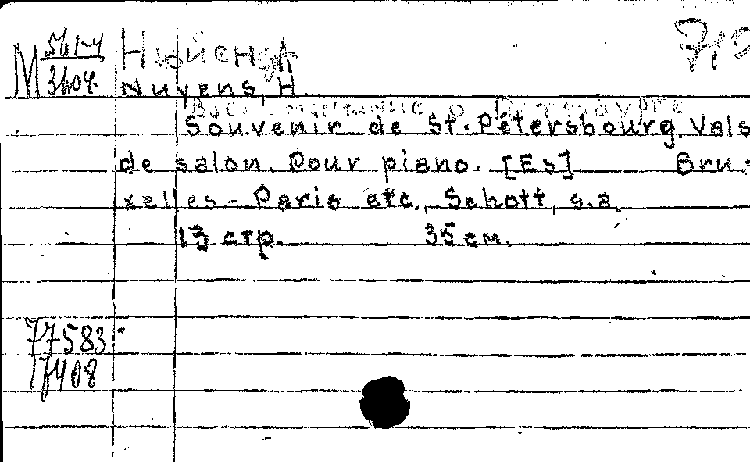 М 561-4
3604.
Нюйенс, А
Nuyens, H.
Воспоминание о Петербурге
Souvenir de St.-Pétersbourg. Vals
de salon. Pour piano. [Es] Bru-
xelles - Paris etc., Schott, s.a.
13 стр. 35 см.
77583
17408